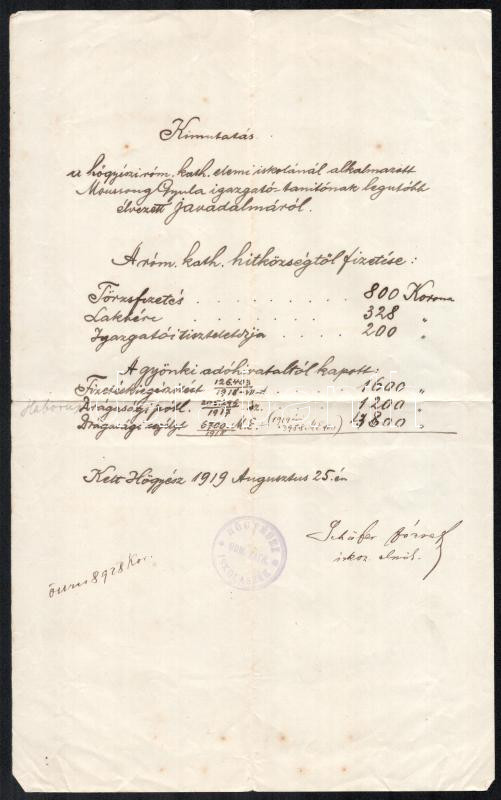 Kimutatás.
a hőgyészi róm. kath. elemi iskolánál alkalmazott
Moussong Gyula igazgató-tanítónak legutóbb
élvezett javadalmáról.
A róm. kath. hitközségtől fizetése:
Törzsfizetés . . . . . . . . 800 Korona
Lakbére . . . . . . . . 328 "
Igazgatói tiszteletdíja . . . . . 200 "
A gyönki adóhivataltól kapott:
Fizetéskiegészítést 1600 "
Háborús
Drágasági pótl. 1917 sz. 1200 "
Drágasági segély 6700 M.E. 1918 4800 "
Kelt Hőgyész 1919 Augusztus 25.én
Schäfer József
isksz. elnök.
HŐGYÉSZI
RÓM. KATH.
ISKOLASZÉK
össz 8928 Kor.